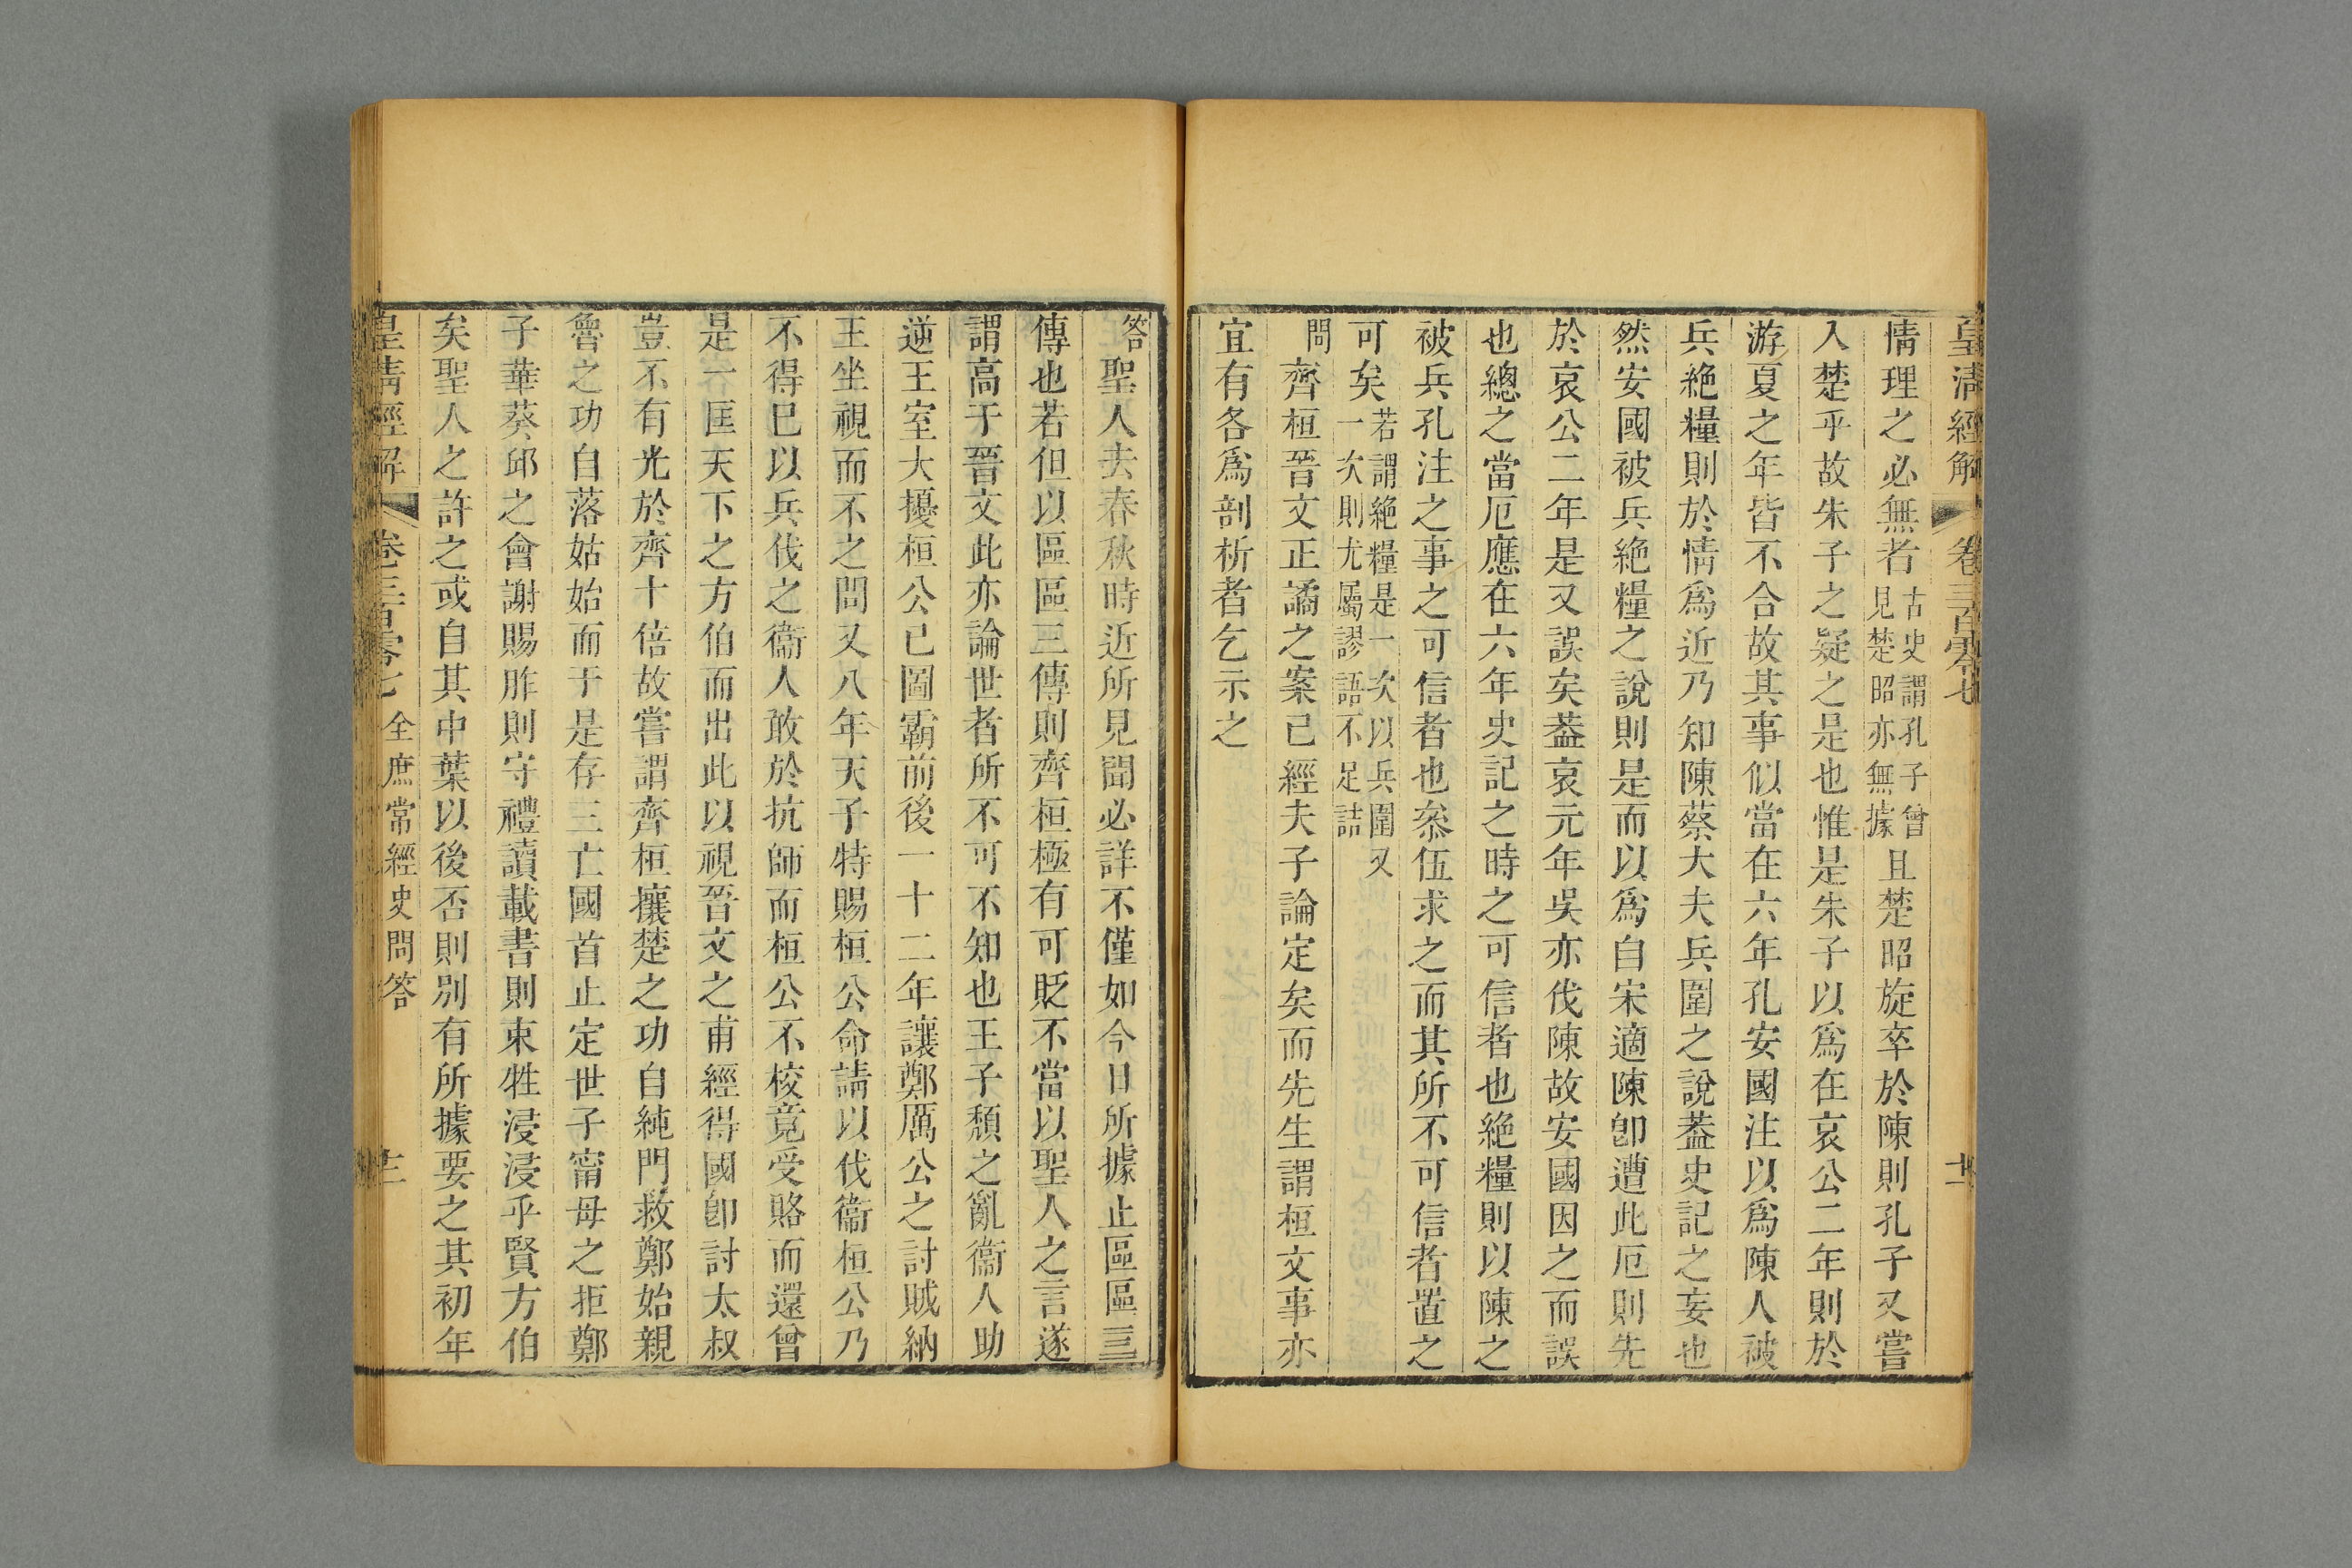 皇清經解 卷三百零七
情理之必無者古史謂孔子曾見楚昭亦無據且楚昭旋卒於陳則孔子又嘗
入楚乎故朱子之疑之是也惟是朱子以爲在哀公二年則於
游夏之年皆不合故其事似當在六年孔安國注以爲陳人被
兵絶糧則於情爲近乃知陳蔡大夫兵圍之說蓋史記之妄也
然安國被兵絶糧之說則是而以爲自宋適陳卽遭此厄則先
於哀公二年是又誤矣蓋哀元年吳亦伐陳故安國因之而誤
也總之當厄應在六年史記之時之可信者也絶糧則以陳之
被兵孔注之事之可信者也叅伍求之而其所不可信者置之
可矣若謂絶糧是一次以兵圍又一次則尤屬謬語不足詰
問齊桓晉文正譎之案已經夫子論定矣而先生謂桓文事亦
宜有各爲剖析者乞示之
答聖人去春秋時近所見聞必詳不僅如今日所據止區區三
傳也若但以區區三傳則齊桓極有可貶不當以聖人之言遂
謂高于晉文此亦論世者所不可不知也王子頹之亂衞人助
逆王室大擾桓公已圖霸前後一十二年讓鄭厲公之討賊納
王坐視而不之問又八年天子特賜桓公命請以伐衞桓公乃
不得已以兵伐之衞人敢於抗師而桓公不校竟受賂而還曾
是一匡天下之方伯而出此以視晉文之甫經得國卽討太叔
豈不有光於齊十倍故嘗謂齊桓攘楚之功自純門救鄭始親
魯之功自落姑始而于是存三亡國首止定世子甯母之拒鄭
子華葵邱之會謝賜胙則守禮讀載書則束牲浸浸乎賢方伯
矣聖人之許之或自其中葉以後否則別有所據要之其初年
皇清經解 卷三百零七 全庶常經史問答